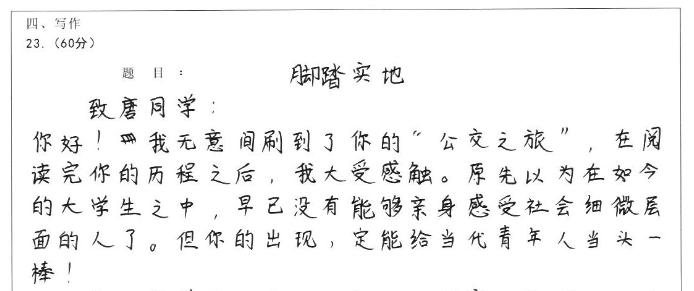 四、写作
23.（60分）
题 目 ：
脚踏实地
致唐同学：
你好！我无意间刷到了你的“公交之旅”，在阅
读完你的历程之后，我大受感触。原先以为在如今
的大学生之中，早已没有能够亲身感受社会细微层
面的人了。但你的出现，定能给当代青年人当头一
棒！